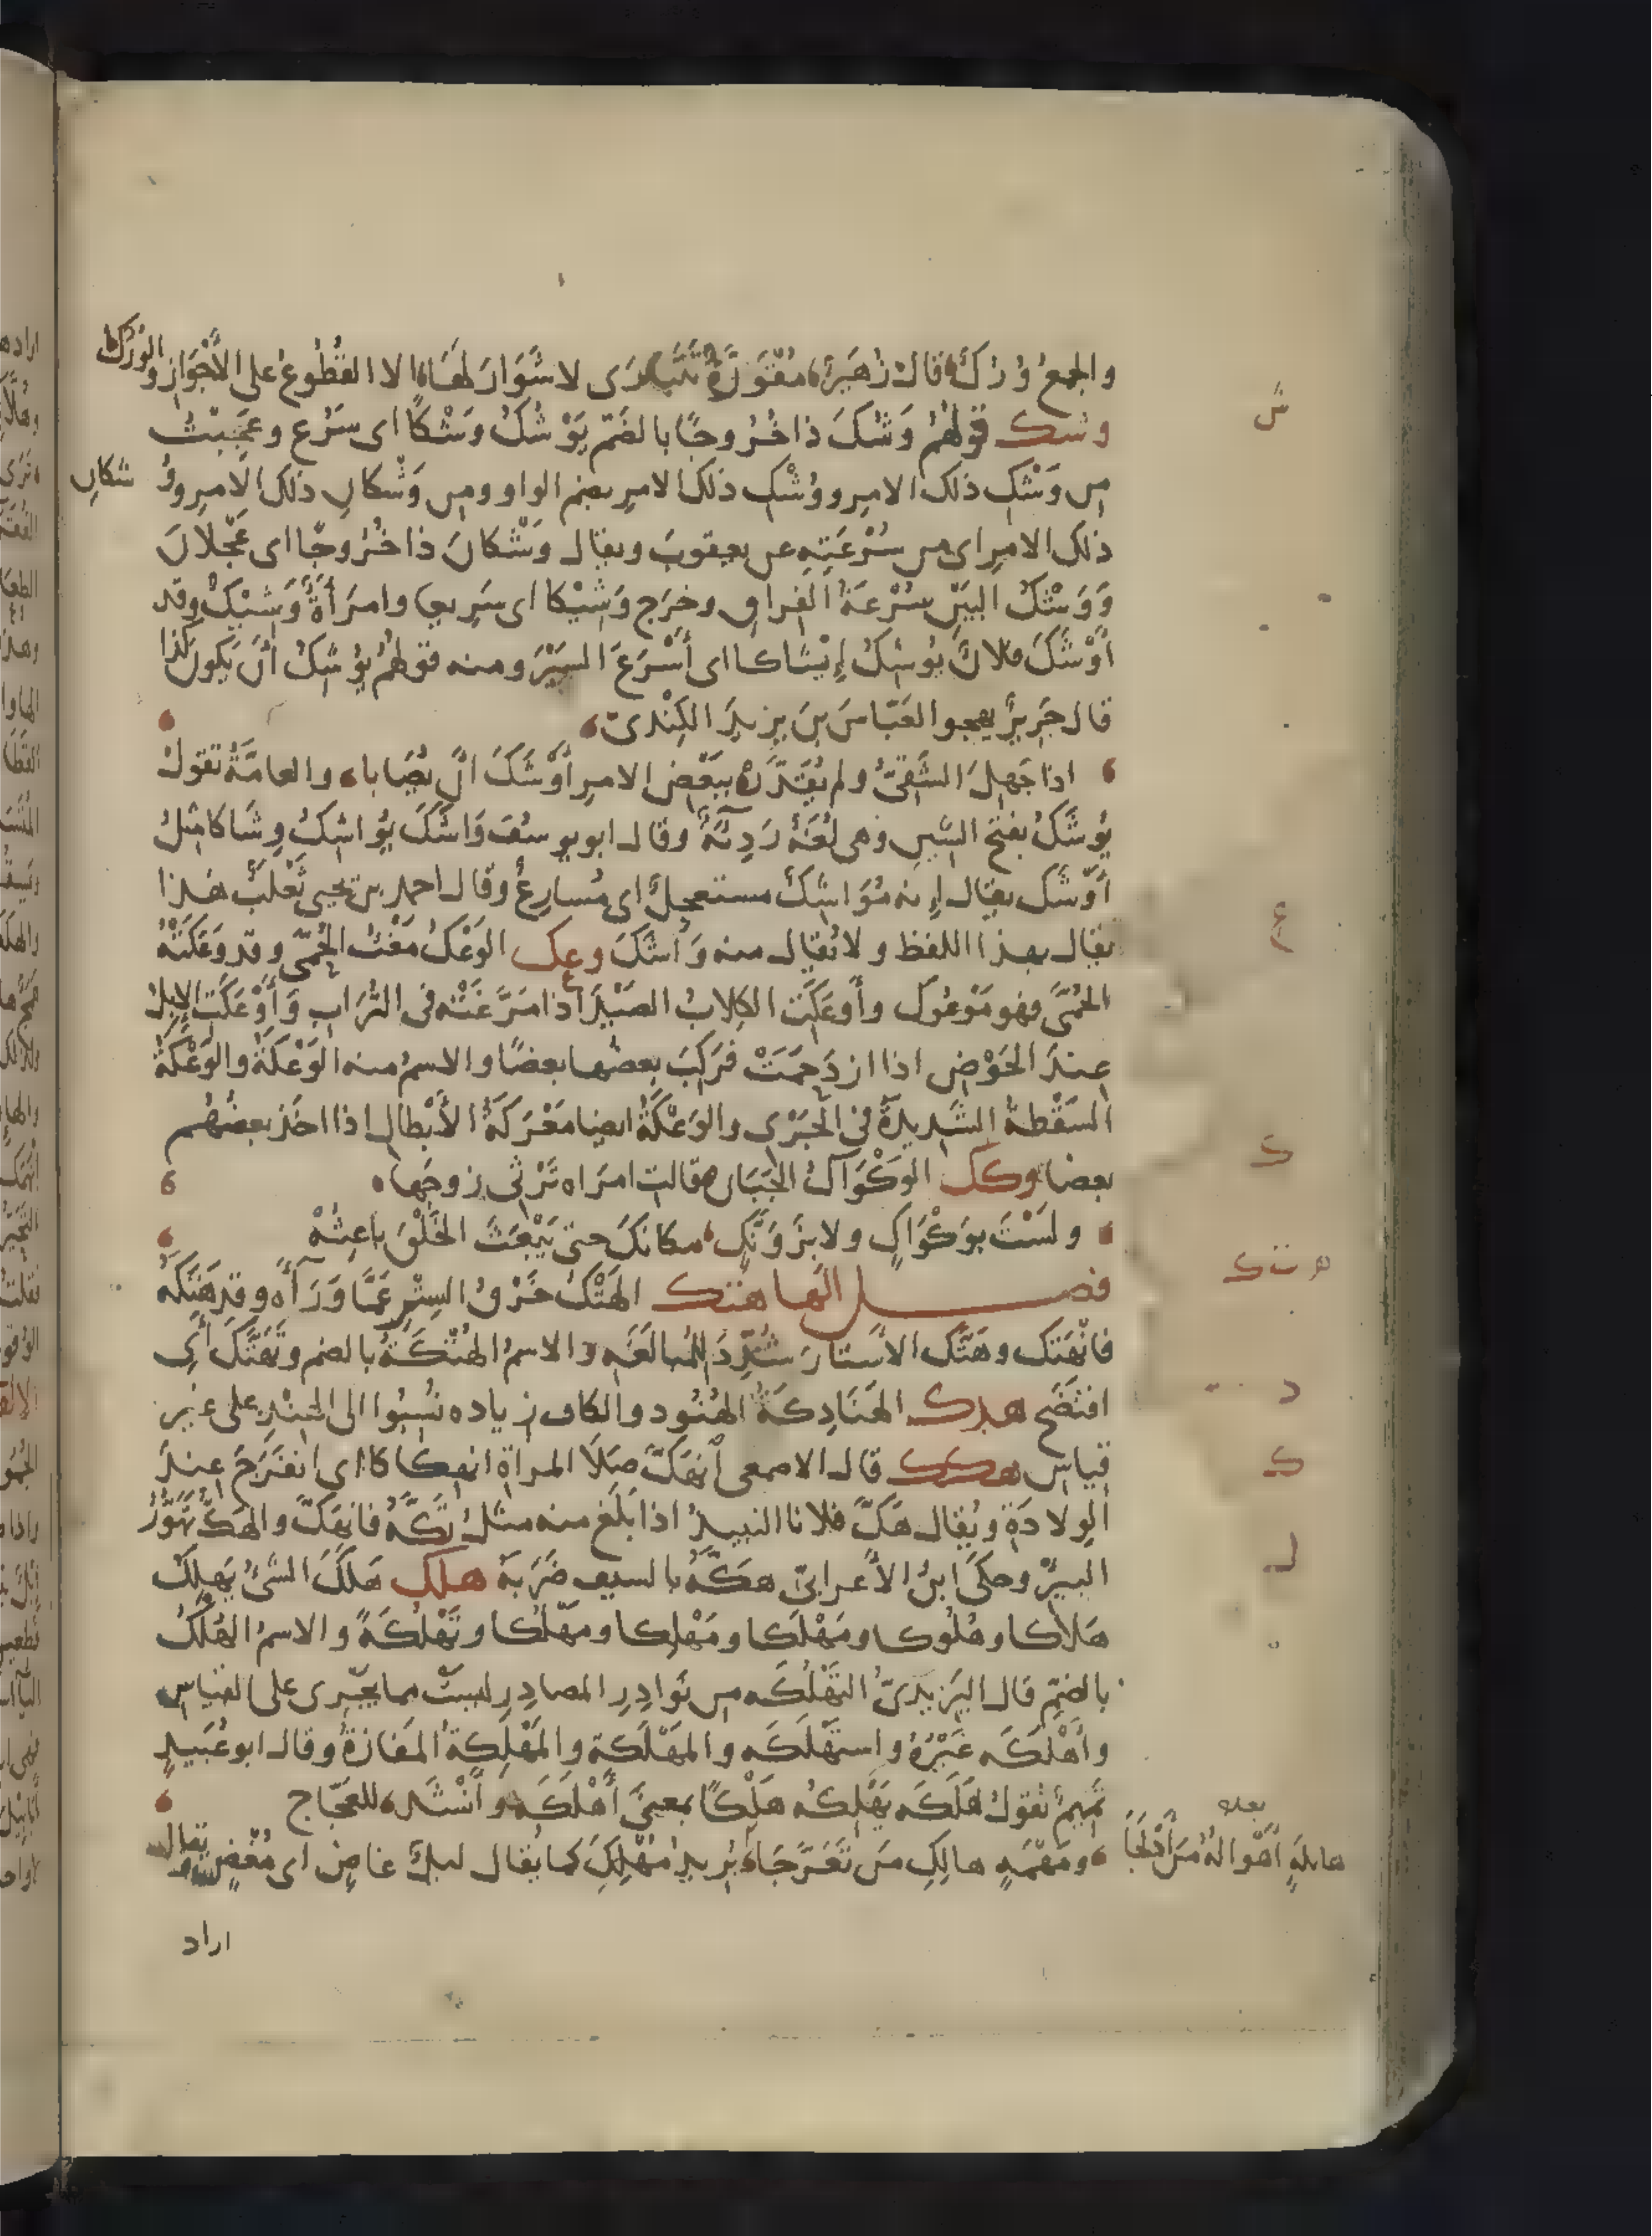 والجمعُ وُرُكٌ قالَ زُهَيرٌ مُقْوَرَّةٌ تَتَبارَى لا شَوَارَ لَهَا الا القُطُوعُ على الأَجْوَازِ والوُرُكُ
وشك قولهُمْ وَشُكَ ذا خُرُوجًا بالضَّمّ يَوْشُكُ وَشْكًا اى سَرُعَ وعَجِبْتُ
من وَشْكِ ذلك الامرِ ووُشْكِ ذلك الامرِ بضم الواو ومن وَشْكانِ ذلك الامرِ ووُ شكانِ
ذلك الامرِ اى من سُرْعَتِهِ عن يعقوبَ ويقال وَشْكانَ ذا خُرُوجًا اى عَجْلانَ
وَوَشْكُ البَيْنِ سُرْعَةُ الفِراقِ وخرَج وَشِيْكا اى سَرِيعا وامرَأَةٌ وَشِيْكٌ وقد
أَوْشَكَ فلانٌ يُوشِكُ إِيْشاكا اى أَسْرَعَ السَيْرَ ومنه قولهُمْ يُوْشِكُ أَنْ يَكونَ كذا
قال جَرِيرٌ يهجو العَبّاسَ بنَ يزيدَ الكِنْدىّ
اذا جَهِلَ الشَقِىُّ ولم يُقَدِّرْ بِبَعْضِ الامرِ أَوْشَكَ انْ يُصَابا والعامَّةُ تقولُ
يُوشَكُ بفتح الشينِ وهى لُغَةٌ رَدِيَّةٌ وقال ابو يوسُفَ وَاشَكَ يُوَاشِكُ وِشَاكا مثلُ
أَوْشَكَ يقال إِنه مُوَاشِكٌ مستعجِلٌ اى مُسارِعٌ وقال احمد بن يحيى ثَعْلَبٌ هذا
يقال بهذا اللفظ ولا يُقال منه وَاشَكَ وعك الوَعْكُ مَغْثُ الحُمّى وقد وَعَكَتْهُ
الحُمَّى فهو مَوْعُوك وأَوعَكَتِ الكِلابُ الصَيْدَ اذا مَرَّغَتْه فى التُرَابِ وَأَوْعَكَتِ الإِبلُ
عِندَ الحَوْضِ اذا ازدَحَمَتْ فَرَكِبَ بعضُها بعضًا والاسمُ منه الوَعْكَةُ والوَعْكَةُ
السَقْطَةُ الشَدِيدةُ فى الجَرْى والوَعْكَةُ ايضا مَعْرَكَةُ الأَبْطالِ اذا اخَذ بعضُهُم
بعضا وكك الوَكْوَاكُ الجَبَان قالت امرَاه تَرْثِى زوجَها
ولَسْتَ بوَكْوَاكٍ ولا بزَوَنَّكٍ مكانَكَ حتى يَبْعَثَ الخَلْقَ باعِثُهْ
فصل الها هتك الهَتْكُ خَرْقُ السِتْرِ عَمَّا وَرَآءَه وقد هَتَكَهُ
فانْهَتَكَ وهَتَّكَ الاَسْتارَ شُدِّدَ لِلْمُبالَغَهِ والاسمُ الهُتْكَةُ بالضم وتَهَتَّكَ أَىِ
افتَضَح هدك الهَنَادِكَةُ الهُنُود والكاف زياده نُسِبُوا الى الهِنْدِ على غير
قياس هكك قال الاصمعى اْنهَكَّ صَلَا المراةِ انهِكاكًا اى انفَرَجَ عِندَ
الوِلادَةِ ويُقال هَكَّ فلانا النبيذُ اذا بَلَغ منه مثلُ تَكَّهُ فانهَكَّ والهَكُّ تَهَوُّرُ
البيرِ وحكَى ابنُ الأعرابىّ هَكَّهُ بالسيف ضَرَبَهُ هلك هَلَكَ الشَّىُ يَهلِكُ
هَلاكا وهُلُوكا ومَهْلَكا ومَهْلِكا ومَهْلُكا وتَهْلُكَةً والاسمُ الهُلْكُ
بالضمِّ قال اليَزِيدىُّ التَهْلُكَه من نَوادِرِ المصادِرِ ليستْ مما يَجْرِى على القياسِ
وأَهْلَكَه غَيْرُهُ واستَهْلَكَه والمَهْلَكَة والمَهْلِكَةُ المَفازةُ وقال ابو عُبَيدٍ
تميمٌ تقولُ هَلَكَه يَهْلِكُه هَلْكًا بمعنَى أَهْلَكَه وأَنْشَد للعجّاج
ومَهْمَهٍ هالِكِ مَن تَعَرَّجا يُرِيدُ مُهْلِكَ كما يُقال ليلٌ غاضٍ اى مُغْضٍ يقال
بعده
هايلةٍ أَهْوالُهُ مَن أَدْلَجَا
اراد
ش
ع
ك
ه ت ك
د
ك
ل